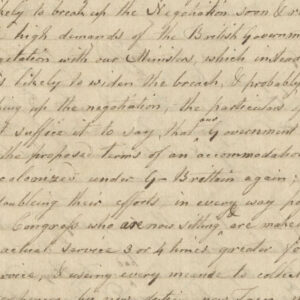 ely to break up the Negotiation soon & r
high demands of the British Governm
retation with our Ministers, which instead
is likely to widen the breach, & probably
ing up the negotiation, the particulars
t suffice it to say that our Government
the proposed terms of an accommodation
colonized under G Brittain again;
doubleing their efforts in every way po
Congress who are now sitting, & are make
actual service 3 or 4 times greater fo
rvice, & useing every means to collect